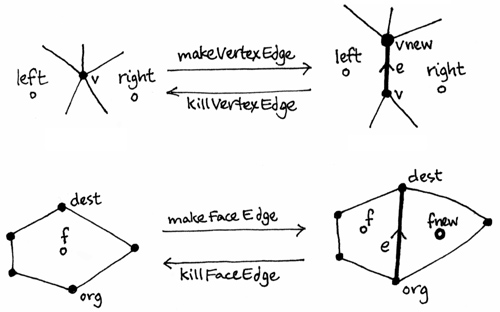 left
v
right
makeVertexEdge
killVertexEdge
left
vnew
e
right
v
dest
f
org
makeFaceEdge
killFaceEdge
dest
f
fnew
e
org